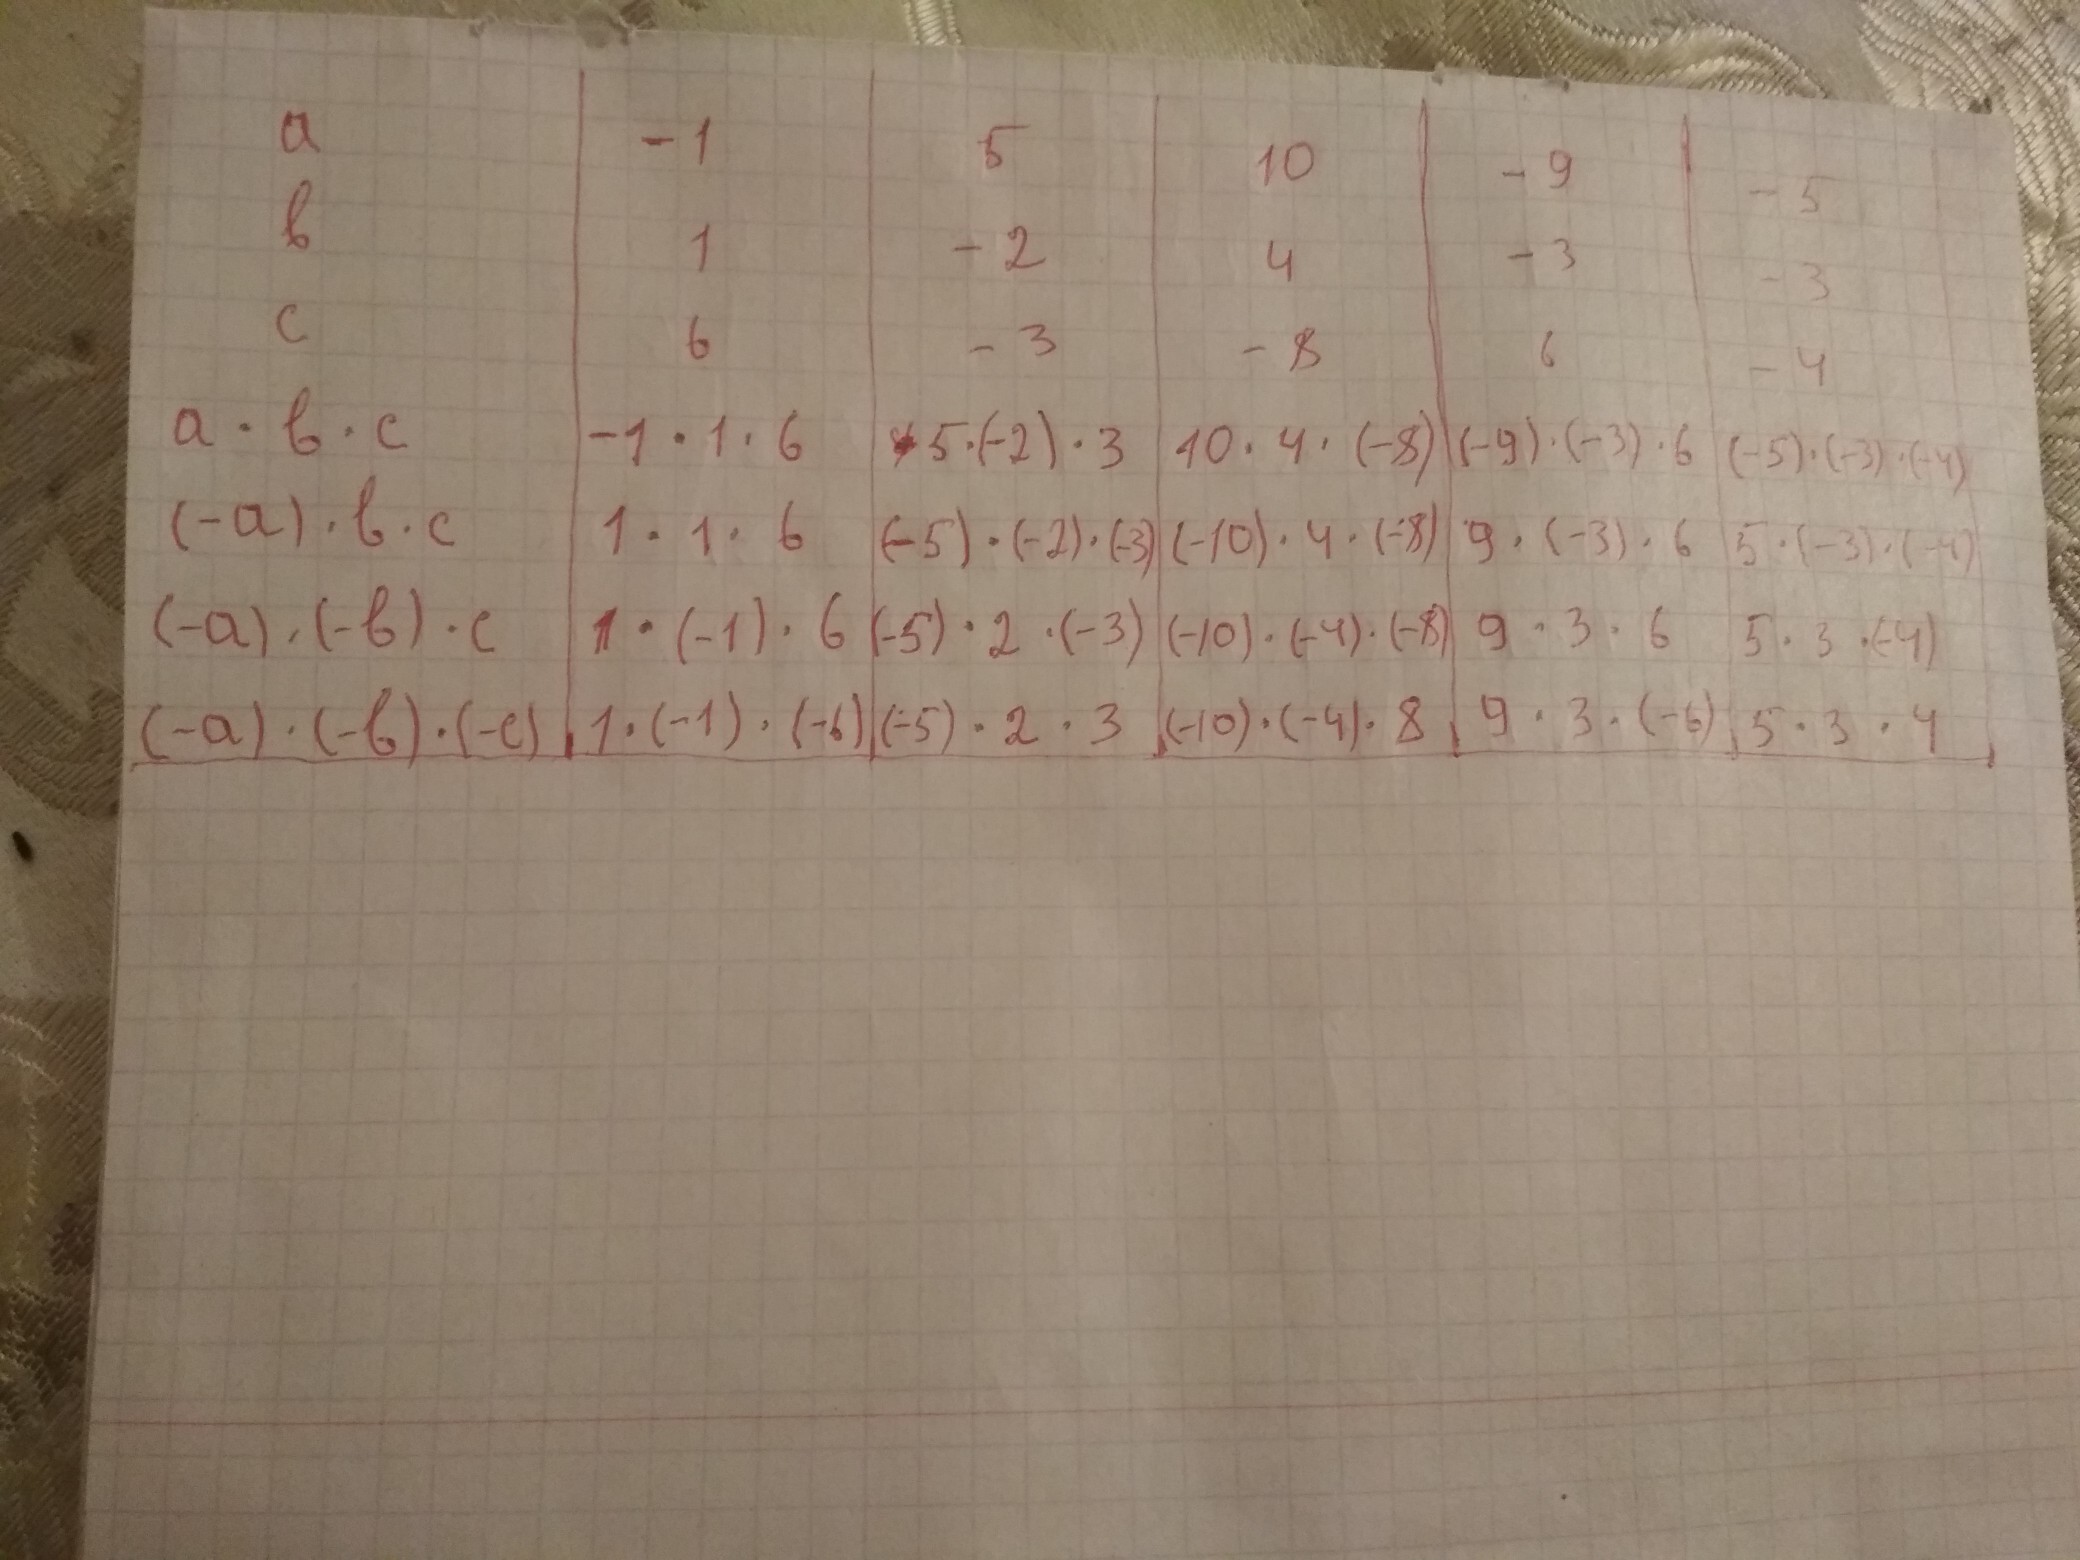 a -1 5 10 -9 -5
в 1 -2 4 -3 -3
c 6 -3 -8 6 -4
a · в · c -1 · 1 · 6 5 · (-2) · 3 10 · 4 · (-8) (-9) · (-3) · 6 (-5) · (-3) · (-4)
(-a) · в · c 1 · 1 · 6 (-5) · (-2) · (-3) (-10) · 4 · (-8) 9 · (-3) · 6 5 · (-3) · (-4)
(-a) · (-в) · c 1 · (-1) · 6 (-5) · 2 · (-3) (-10) · (-4) · (-8) 9 · 3 · 6 5 · 3 · (-4)
(-a) · (-в) · (-c) 1 · (-1) · (-6) (-5) · 2 · 3 (-10) · (-4) · 8 9 · 3 · (-6) 5 · 3 · 4